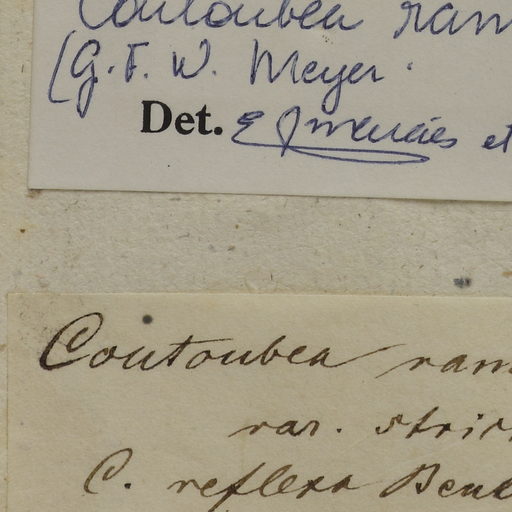 Coutoubea ram
(G.F.W. Meyer.
Det. et
Coutoubea ram
var. stric
C. reflexa Bent